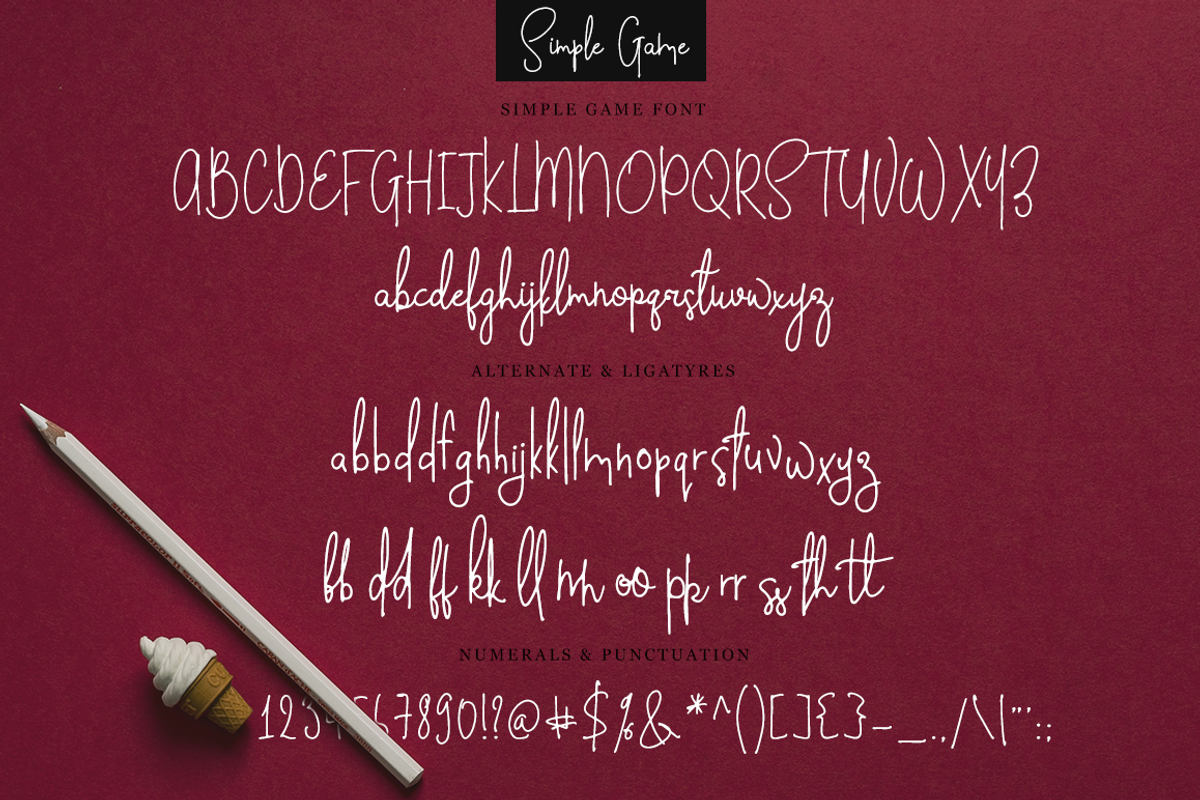 Simple Game
SIMPLE GAME FONT
ABCDEFGHIJKLMNOPQRSTUVWXYZ
abcdefghijklmnopqrstuvwxyz
ALTERNATE & LIGATYRES
abbddfghhijkkllmnopqrstuvwxyz
bb dd ff kk ll mm oo pp rr ss th tt
NUMERALS & PUNCTUATION
1234567890!?@#$%&*^()[]{}-_.,/\|"':;